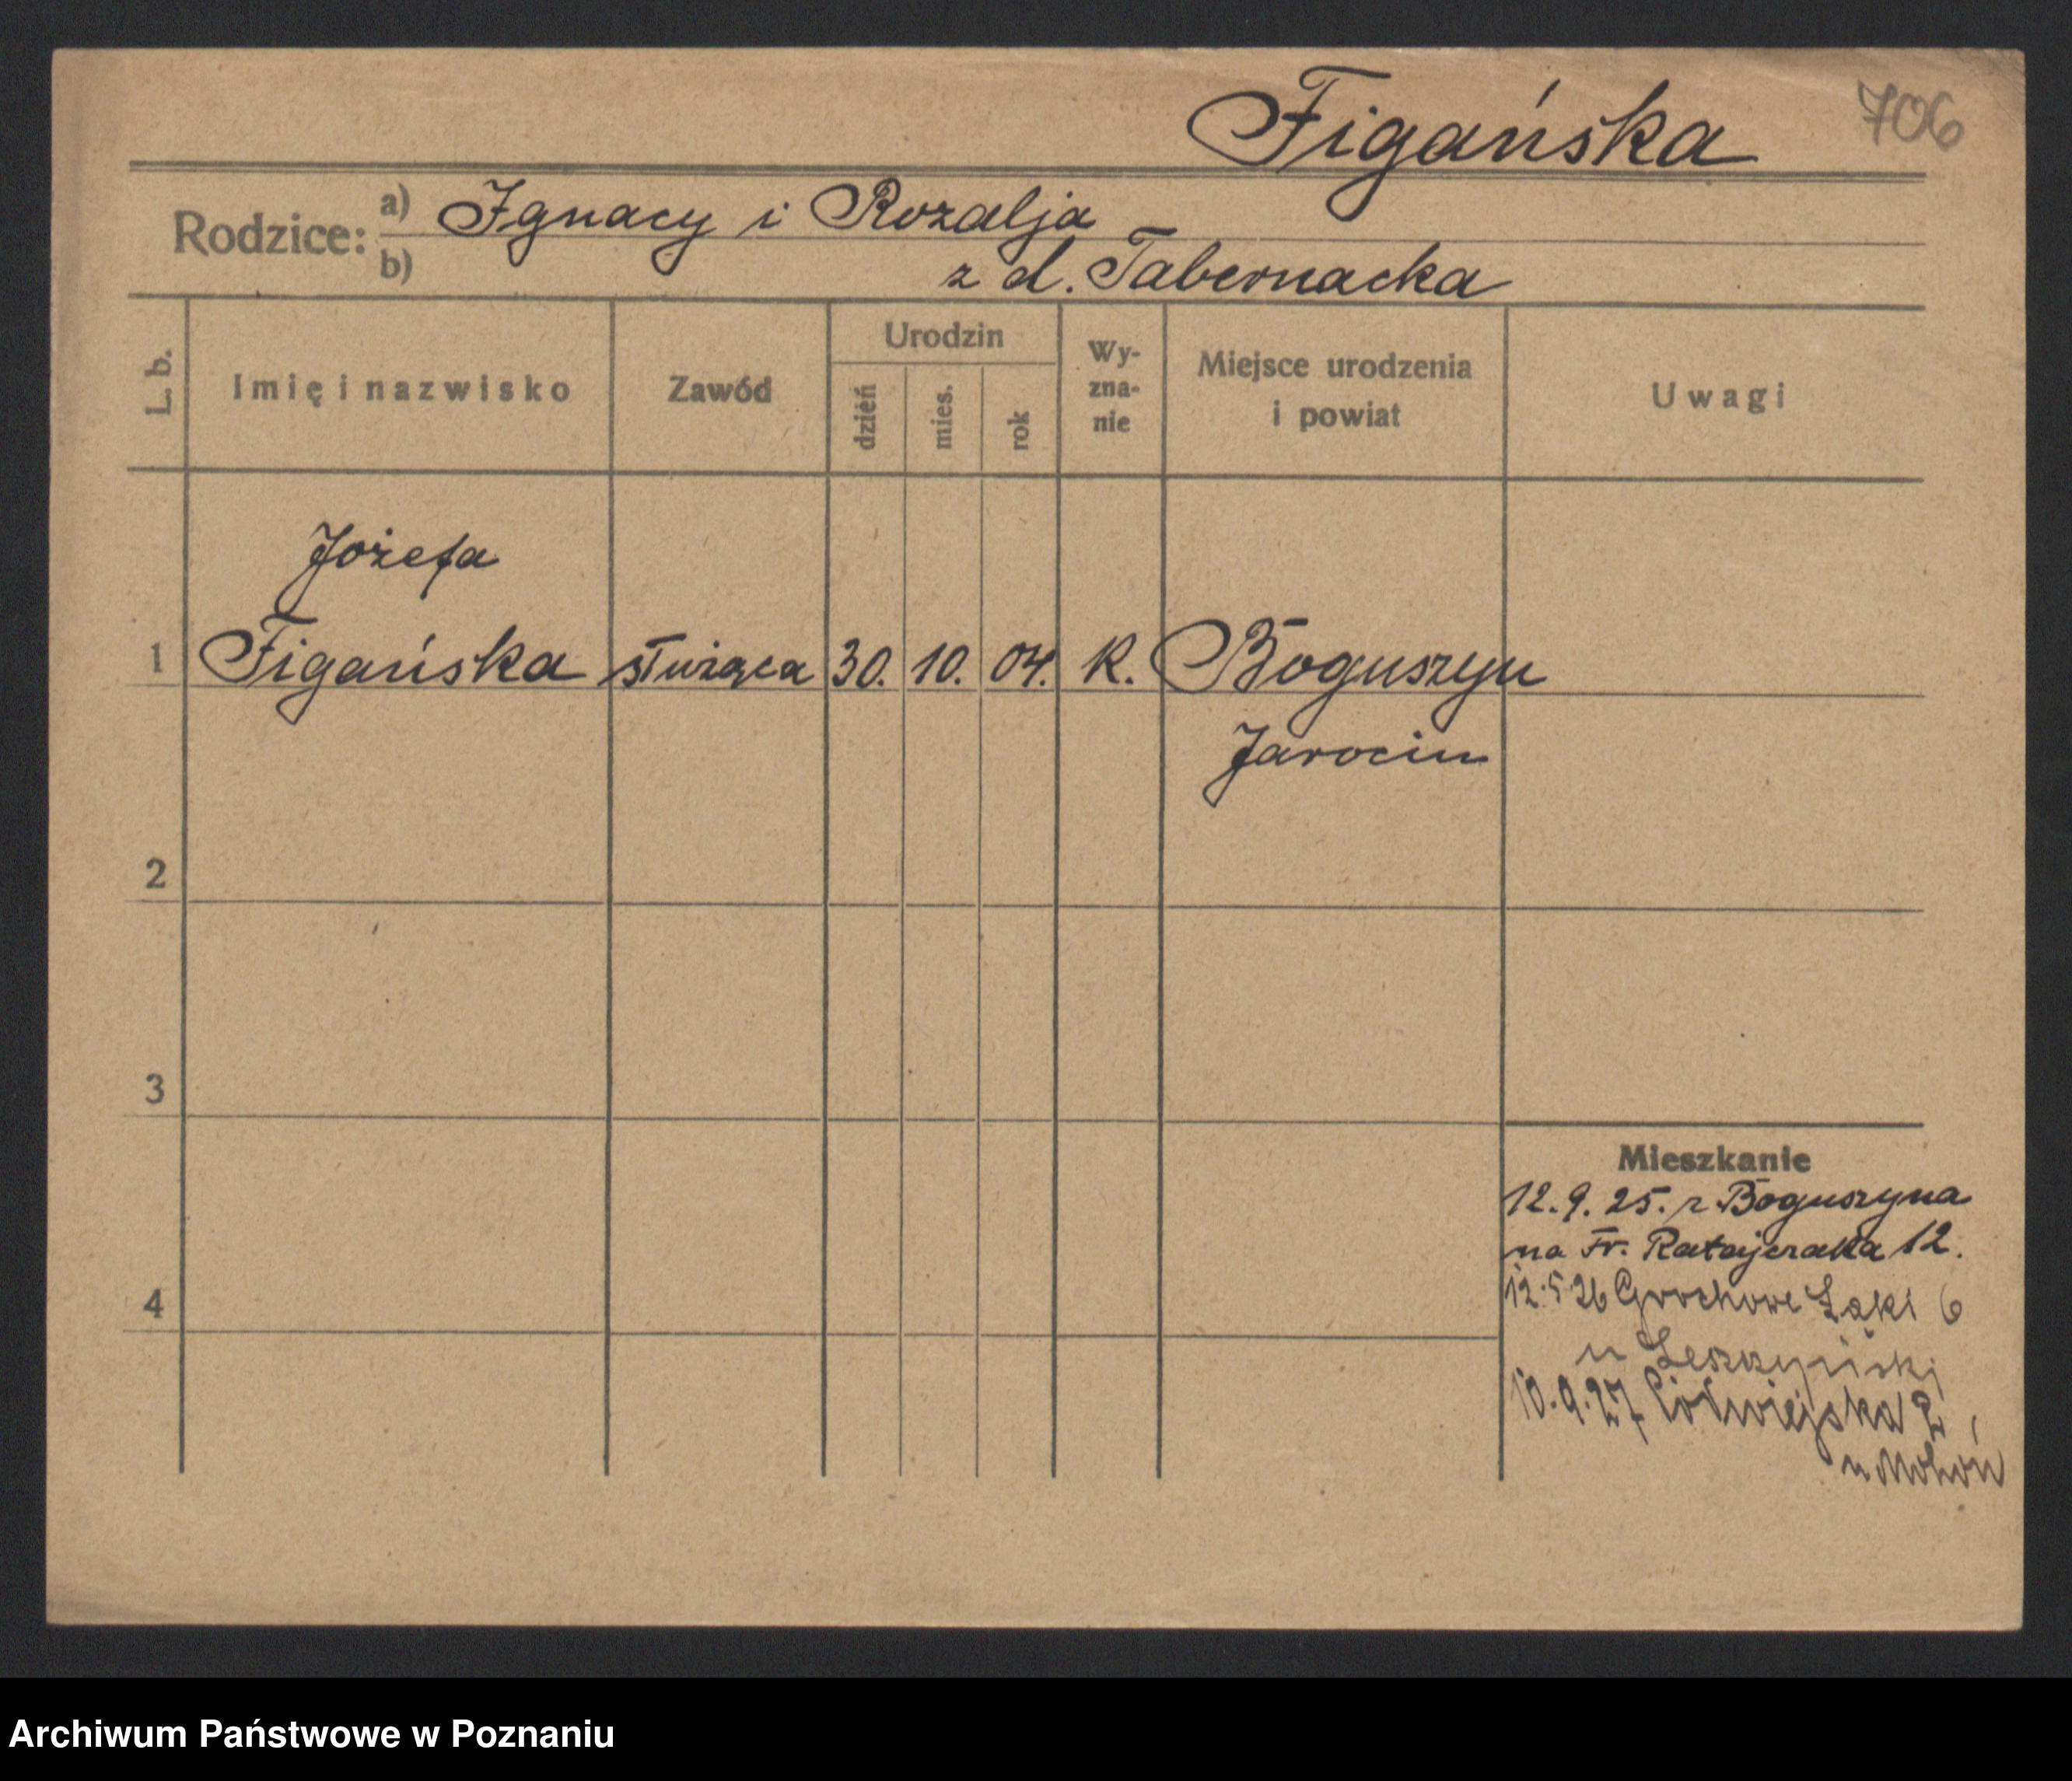 Figańska 706
Rodzice: a) Ignacy i Rozalja
b) z d. Tabernacka
L. b. Imię i nazwisko Zawód Urodzin dzień mies. rok Wy-zna-nie Miejsce urodzenia i powiat Uwagi
Józefa
1 Figańska służąca 30. 10. 04. K. Boguszyn
Jarocin
2
3
Mieszkanie
12.9.25. z Boguszyna
na Fr. Ratajczaka 12.
4
12.5.26 Grochowe Łąki 6
u Leszczyński
10.9.27 Półwiejska 2
u
Archiwum Państwowe w Poznaniu